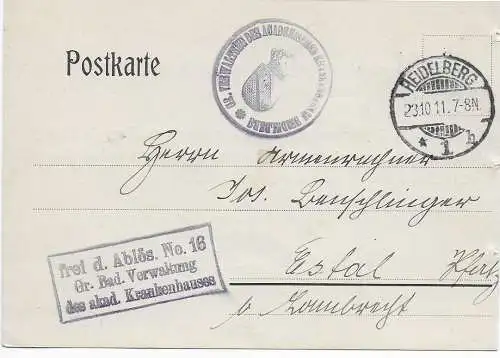 Postkarte
GR. VERWALTUNG DES AKADEMISCHEN KRANKENHAUSES HEIDELBERG
HEIDELBERG
23.10 11.7-8N.
* 1 h
Herrn Armenrechner
Jos. Benschlinger
Estal Pfalz
p Lambrecht
frei d. Ablös. No. 16
Gr. Bad. Verwaltung
des akad. Krankenhauses